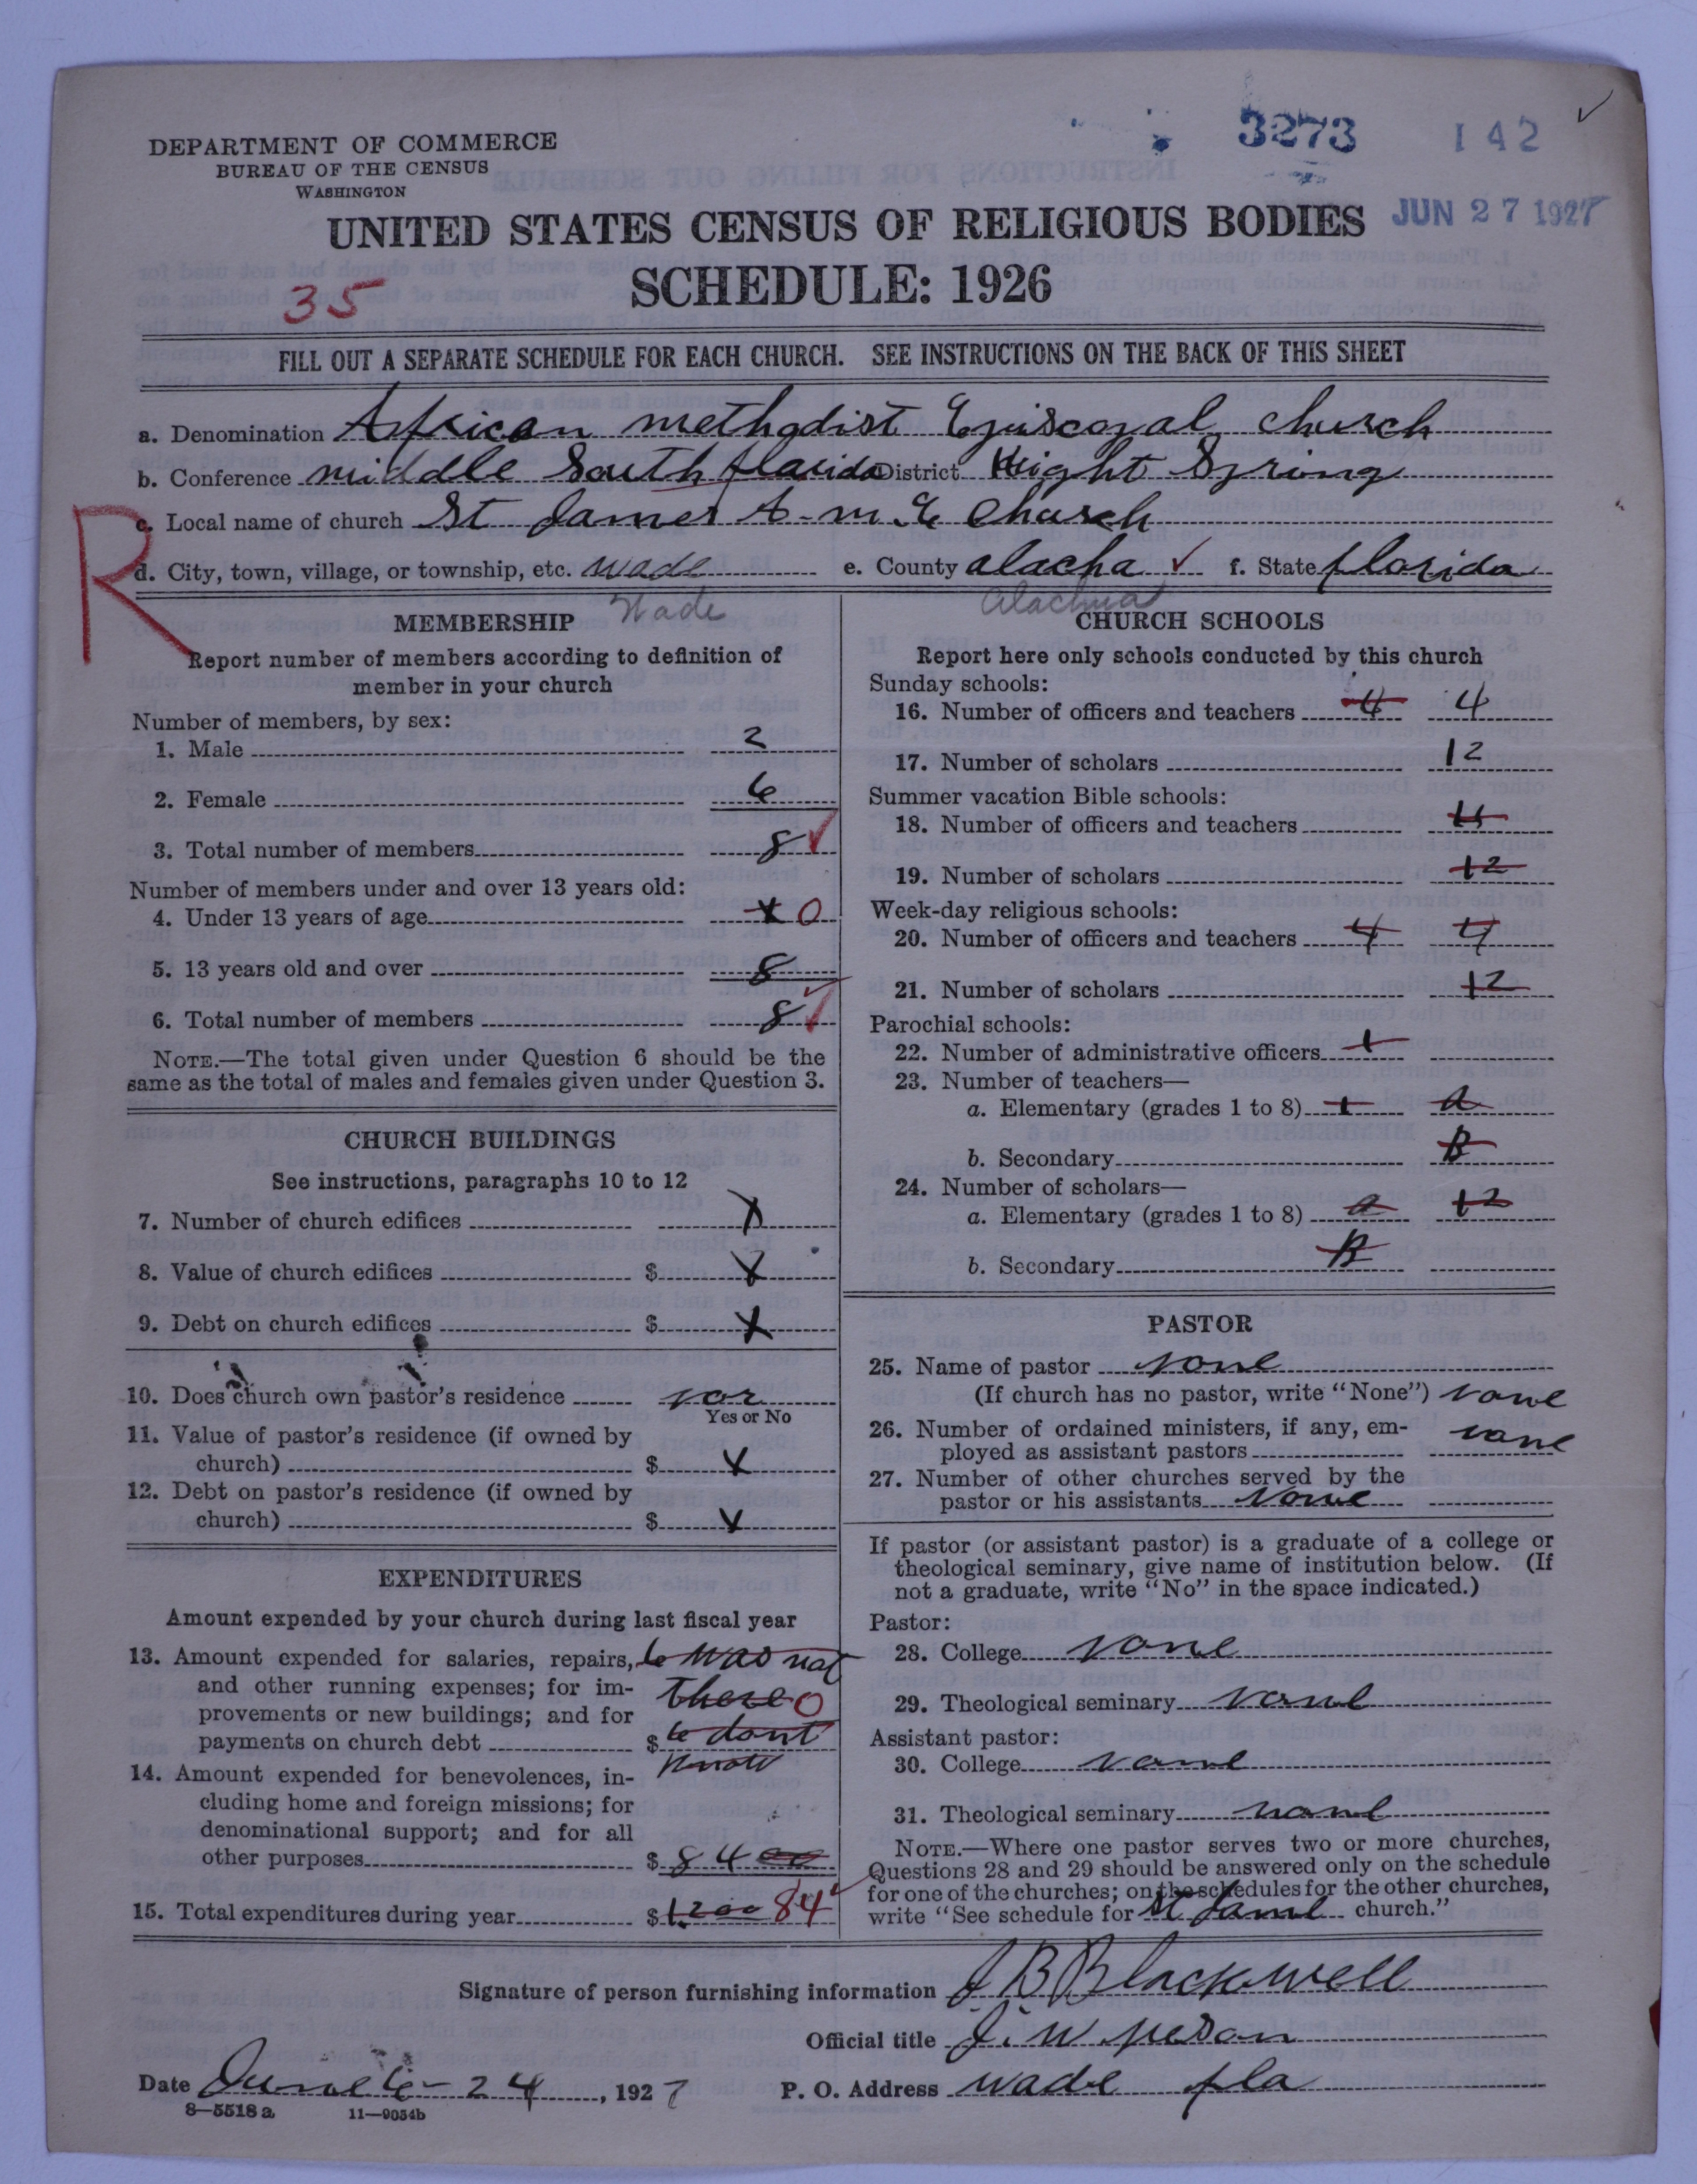 3273 142
DEPARTMENT OF COMMERCE
BUREAU OF THE CENSUS
WASHINGTON
JUN 27 1927
UNITED STATES CENSUS OF RELIGIOUS BODIES
SCHEDULE: 1926
35
FILL OUT A SEPARATE SCHEDULE FOR EACH CHURCH. SEE INSTRUCTIONS ON THE BACK OF THIS SHEET
a. Denomination African methodist Episcopal church
b. Conference middle South florida District Hight Spring
R
c. Local name of church St James A. m. E Church
d. City, town, village, or township, etc. Wade e. County alacha ✓ f. State florida
Wade Alachua
MEMBERSHIP
Report number of members according to definition of
member in your church
Number of members, by sex:
1. Male 2
2. Female 6
3. Total number of members 8
Number of members under and over 13 years old:
4. Under 13 years of age x 0
5. 13 years old and over 8
6. Total number of members 8
NOTE.—The total given under Question 6 should be the
same as the total of males and females given under Question 3.
CHURCH BUILDINGS
See instructions, paragraphs 10 to 12
7. Number of church edifices X
8. Value of church edifices $ X
9. Debt on church edifices $ X
10. Does church own pastor's residence
Yes or No
11. Value of pastor's residence (if owned by
church) $ X
12. Debt on pastor's residence (if owned by
church) $ X
EXPENDITURES
Amount expended by your church during last fiscal year
13. Amount expended for salaries, repairs, was not
and other running expenses; for im- there 0
provements or new buildings; and for
payments on church debt $ dont
know
14. Amount expended for benevolences, in-
cluding home and foreign missions; for
denominational support; and for all
other purposes $ 84 00
15. Total expenditures during year $ 1200 84
CHURCH SCHOOLS
Report here only schools conducted by this church
Sunday schools:
16. Number of officers and teachers 4 4
17. Number of scholars 12
Summer vacation Bible schools:
18. Number of officers and teachers 4
19. Number of scholars 12
Week-day religious schools:
20. Number of officers and teachers 4 4
21. Number of scholars 12
Parochial schools:
22. Number of administrative officers 1
23. Number of teachers—
a. Elementary (grades 1 to 8) 1 a
b. Secondary B
24. Number of scholars—
a. Elementary (grades 1 to 8) a 12
b. Secondary B
PASTOR
25. Name of pastor none
(If church has no pastor, write "None") none
26. Number of ordained ministers, if any, em-
ployed as assistant pastors none
27. Number of other churches served by the
pastor or his assistants none
If pastor (or assistant pastor) is a graduate of a college or
theological seminary, give name of institution below. (If
not a graduate, write "No" in the space indicated.)
Pastor:
28. College none
29. Theological seminary none
Assistant pastor:
30. College none
31. Theological seminary none
NOTE.—Where one pastor serves two or more churches,
Questions 28 and 29 should be answered only on the schedule
for one of the churches; on the schedules for the other churches,
write "See schedule for St Jame church."
Signature of person furnishing information J B Blackwell
Official title J. W.
Date June 6-24, 1927 P. O. Address wade fla
8—5518 a 11—9054b